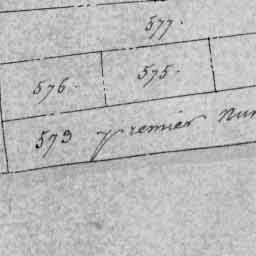 577.
576. 575.
573 premier